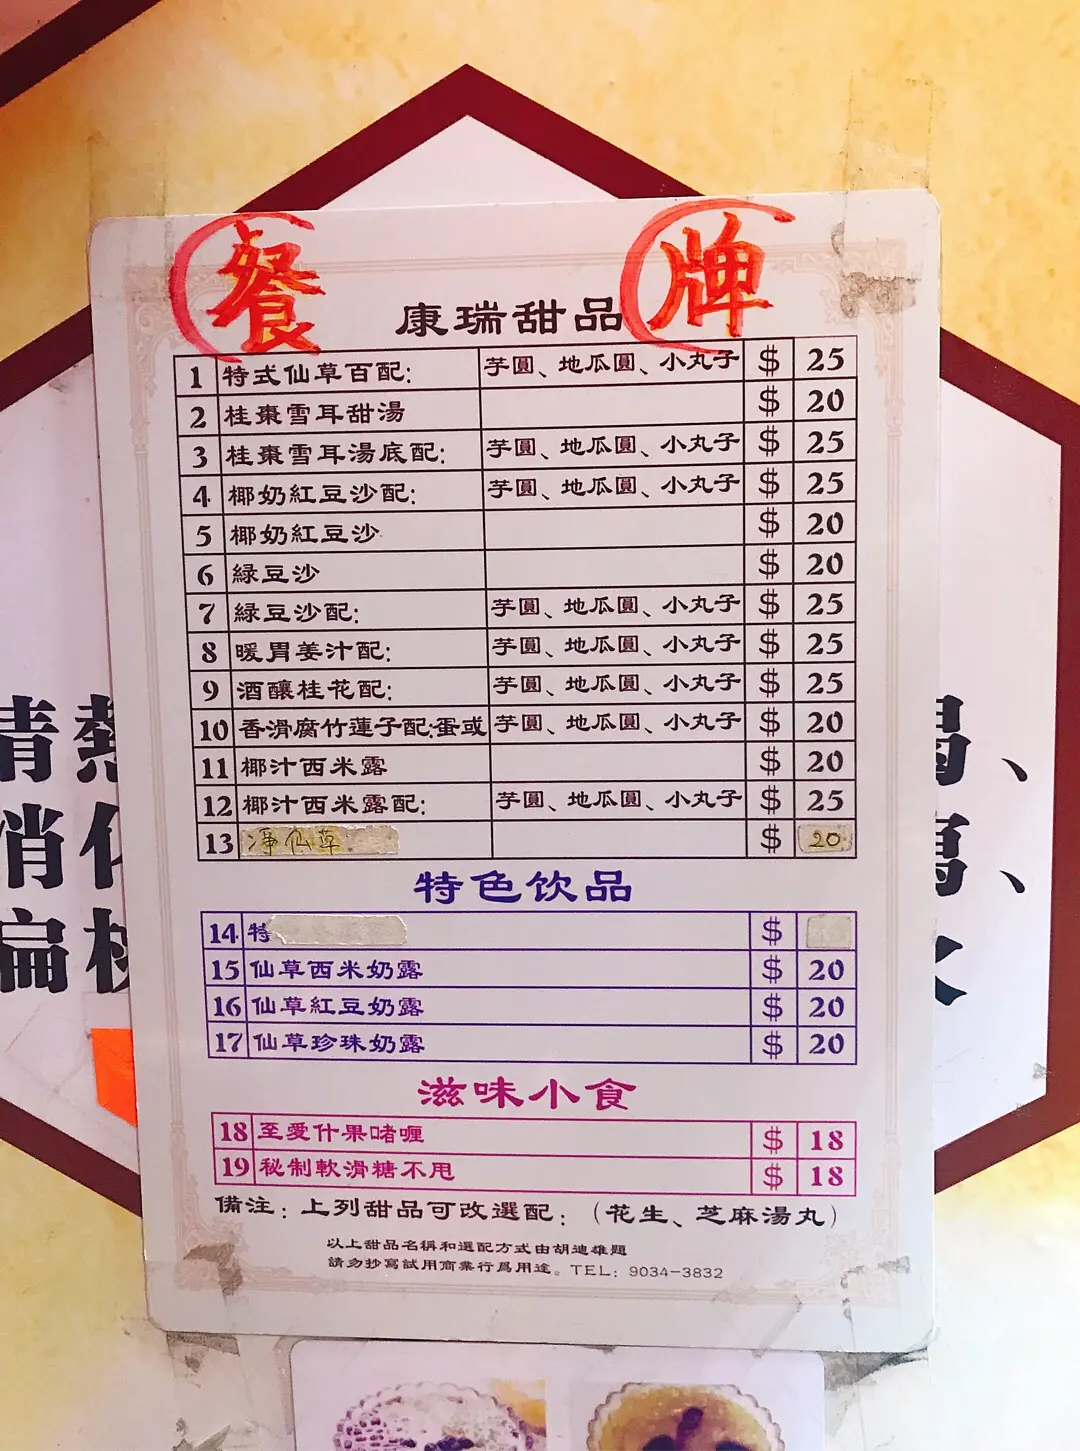 餐 牌
康瑞甜品
1 特式仙草百配: 芋圓、地瓜圓、小丸子 $ 25
2 桂棗雪耳甜湯 $ 20
3 桂棗雪耳湯底配: 芋圓、地瓜圓、小丸子 $ 25
4 椰奶紅豆沙配: 芋圓、地瓜圓、小丸子 $ 25
5 椰奶紅豆沙 $ 20
6 綠豆沙 $ 20
7 綠豆沙配: 芋圓、地瓜圓、小丸子 $ 25
8 暖胃姜汁配: 芋圓、地瓜圓、小丸子 $ 25
9 酒釀桂花配: 芋圓、地瓜圓、小丸子 $ 25
10 香滑腐竹蓮子配:蛋或 芋圓、地瓜圓、小丸子 $ 20
11 椰汁西米露 $ 20
12 椰汁西米露配: 芋圓、地瓜圓、小丸子 $ 25
13 凈仙草 $ 20
特色饮品
14 特 $
15 仙草西米奶露 $ 20
16 仙草紅豆奶露 $ 20
17 仙草珍珠奶露 $ 20
滋味小食
18 至愛什果啫喱 $ 18
19 秘制軟滑糖不甩 $ 18
備注: 上列甜品可改選配: (花生、芝麻湯丸)
以上甜品名稱和選配方式由胡迪雄題
請勿抄寫試用商業行爲用途。TEL: 9034-3832
清熱
消
扁